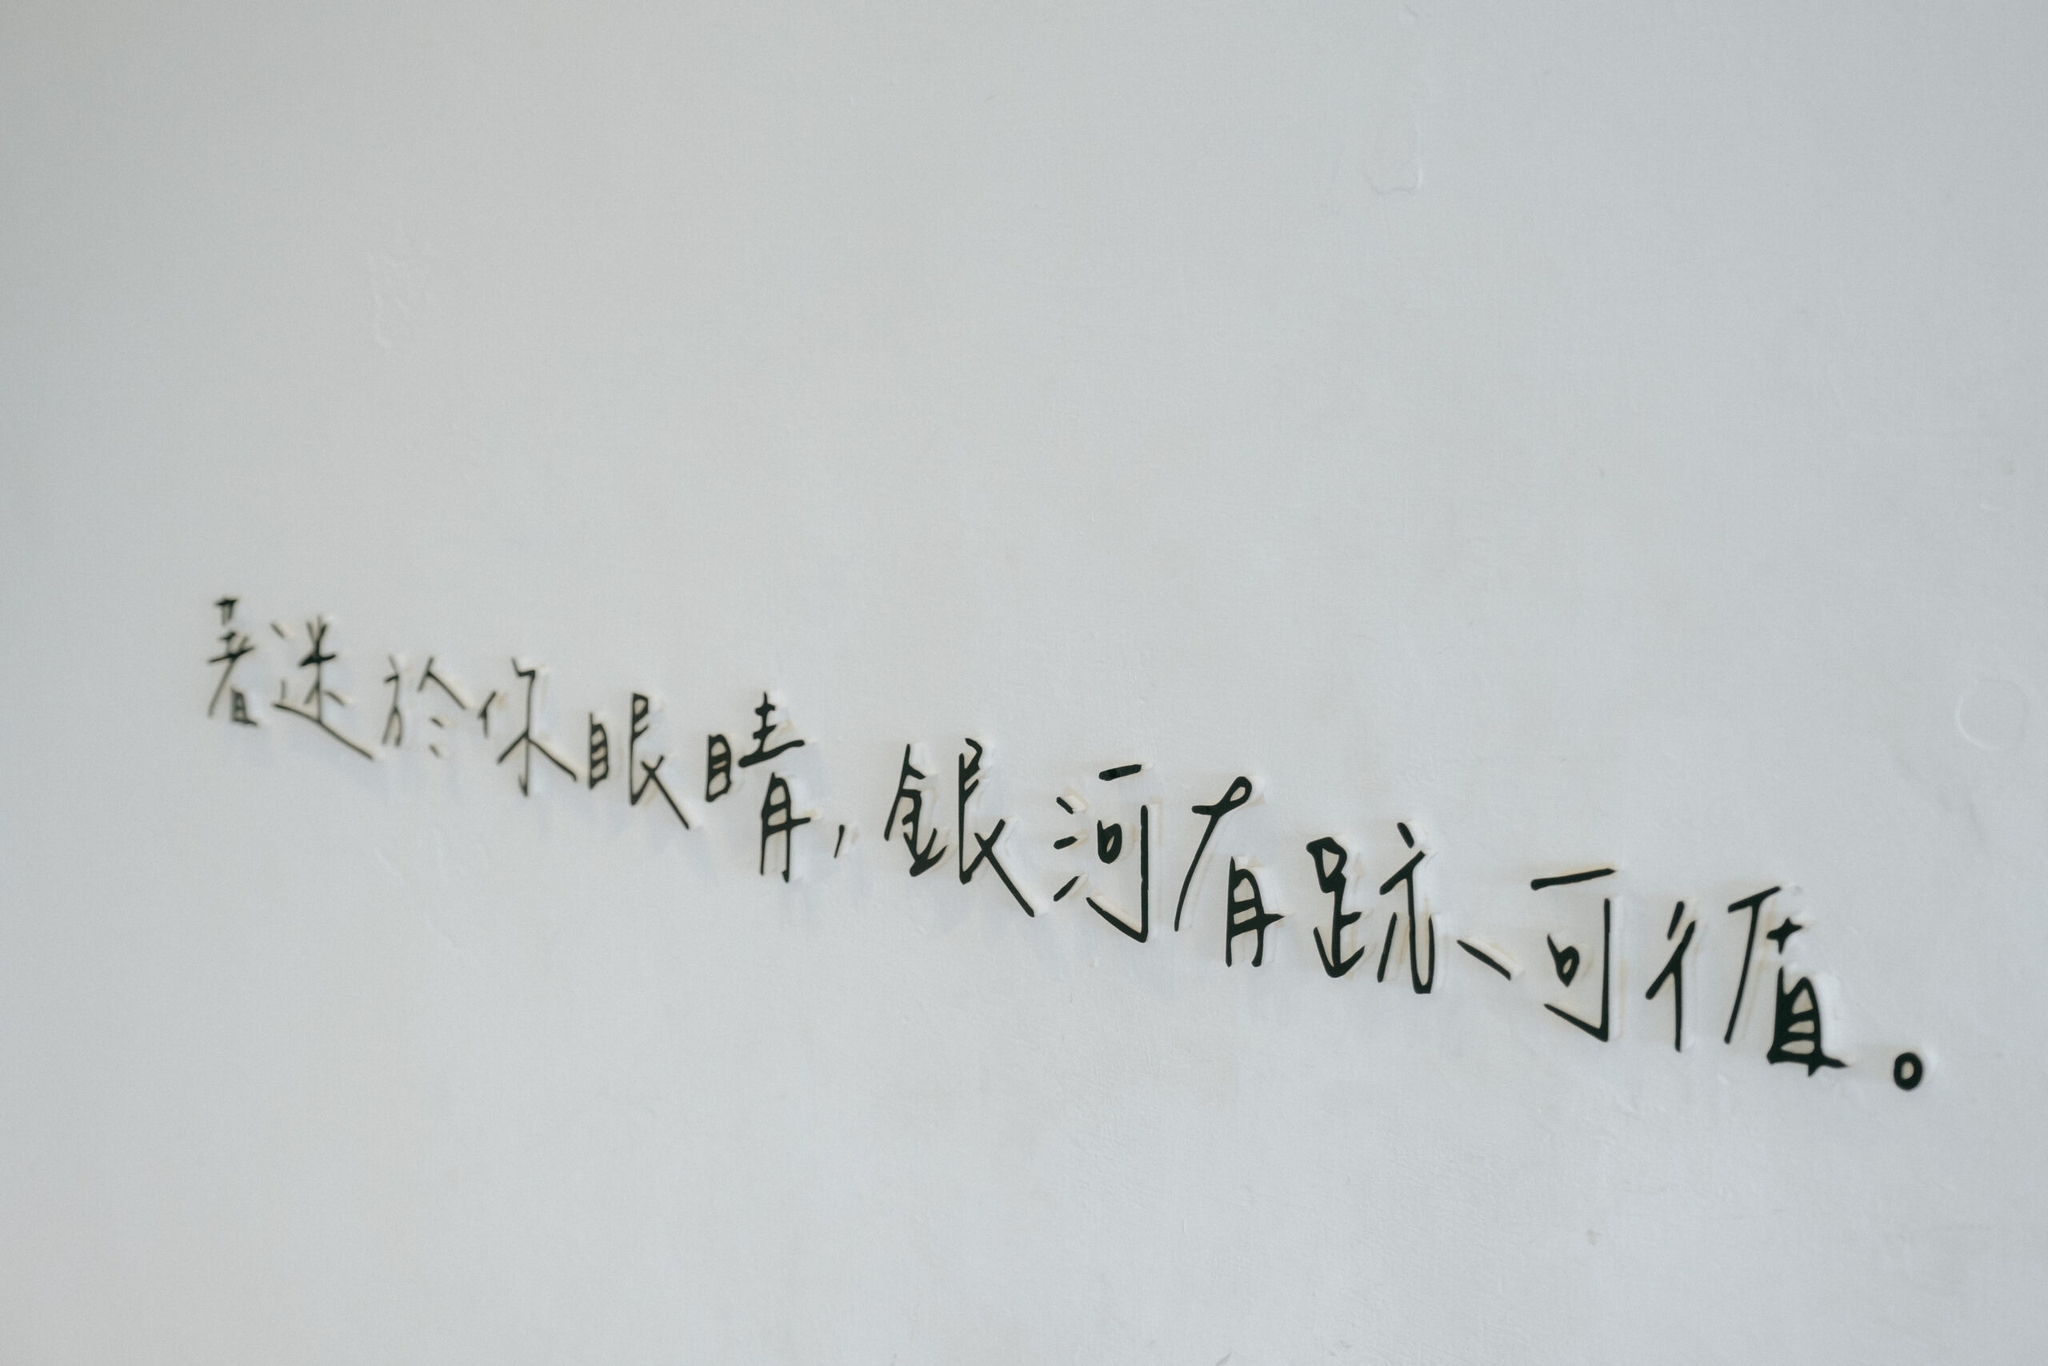 著迷於你眼睛,銀河有跡可循。